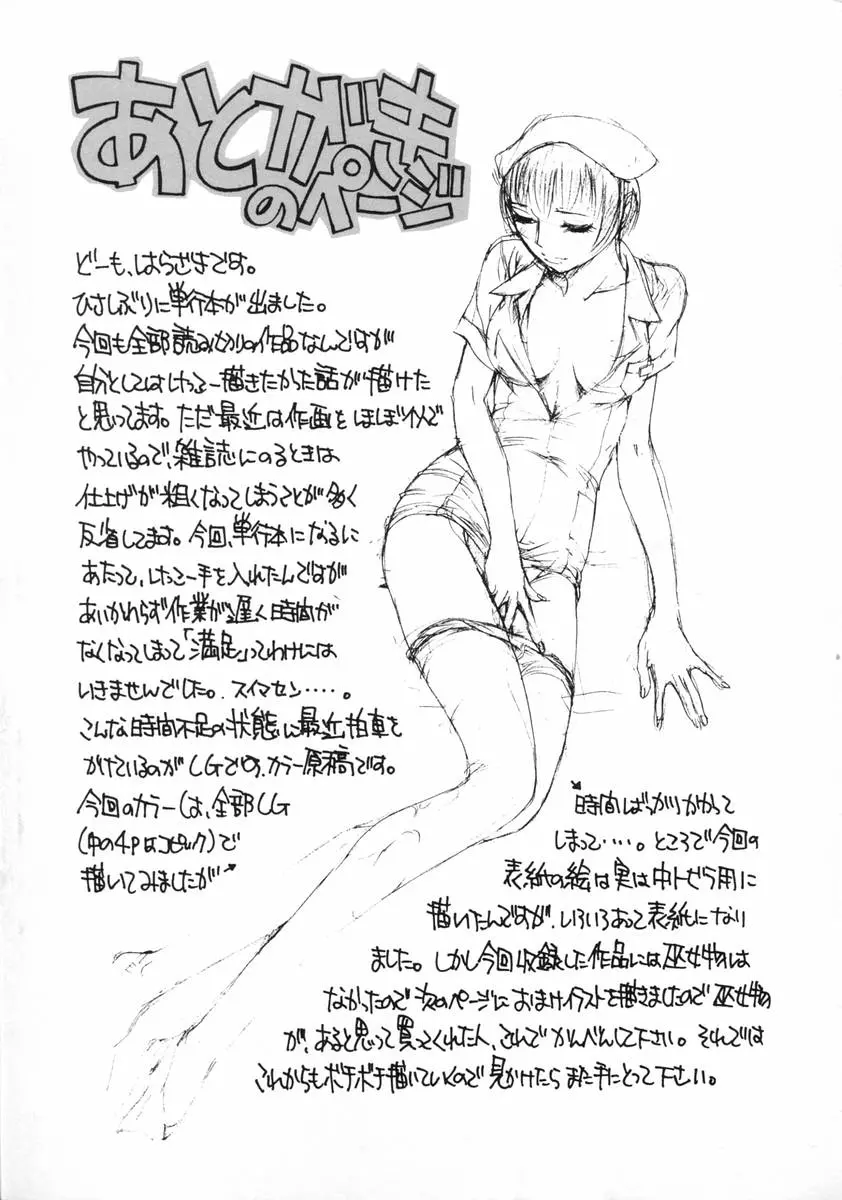 あとがきのページ
どーも、はらざきです。
ひさしぶりに単行本が出ました。
今回も全部読み切りの作品なんですが
自分としてはけっこー描きたかった話が描けた
と思ってます。ただ最近は作画をほぼ1人で
やっているので、雑誌にのるときは
仕上げが粗くなってしまうことが多く
反省してます。今回、単行本になるに
あたって、けっこー手を入れたんですが
あいかわらず作業が遅く時間が
なくなってしまって「満足」ってわけには
いきませんでした。スイマセン‥‥。
こんな時間不足の状態に最近拍車を
かけているのがCGでの、カラー原稿です。
今回のカラーは、全部CG
(中の4Pはコピック)で
描いてみましたが
時間ばっかりかかって
しまって‥‥。ところで今回の
表紙の絵は実は中トビラ用に
描いたんですが、いろいろあって表紙になり
ました。しかし今回収録した作品には巫女物は
なかったので次のページにおまけイラストを描きましたので巫女物
が、あると思って買ってくれた人、これでかんべんして下さい。それでは
これからもボチボチ描いていくので見かけたらまた手にとって下さい。